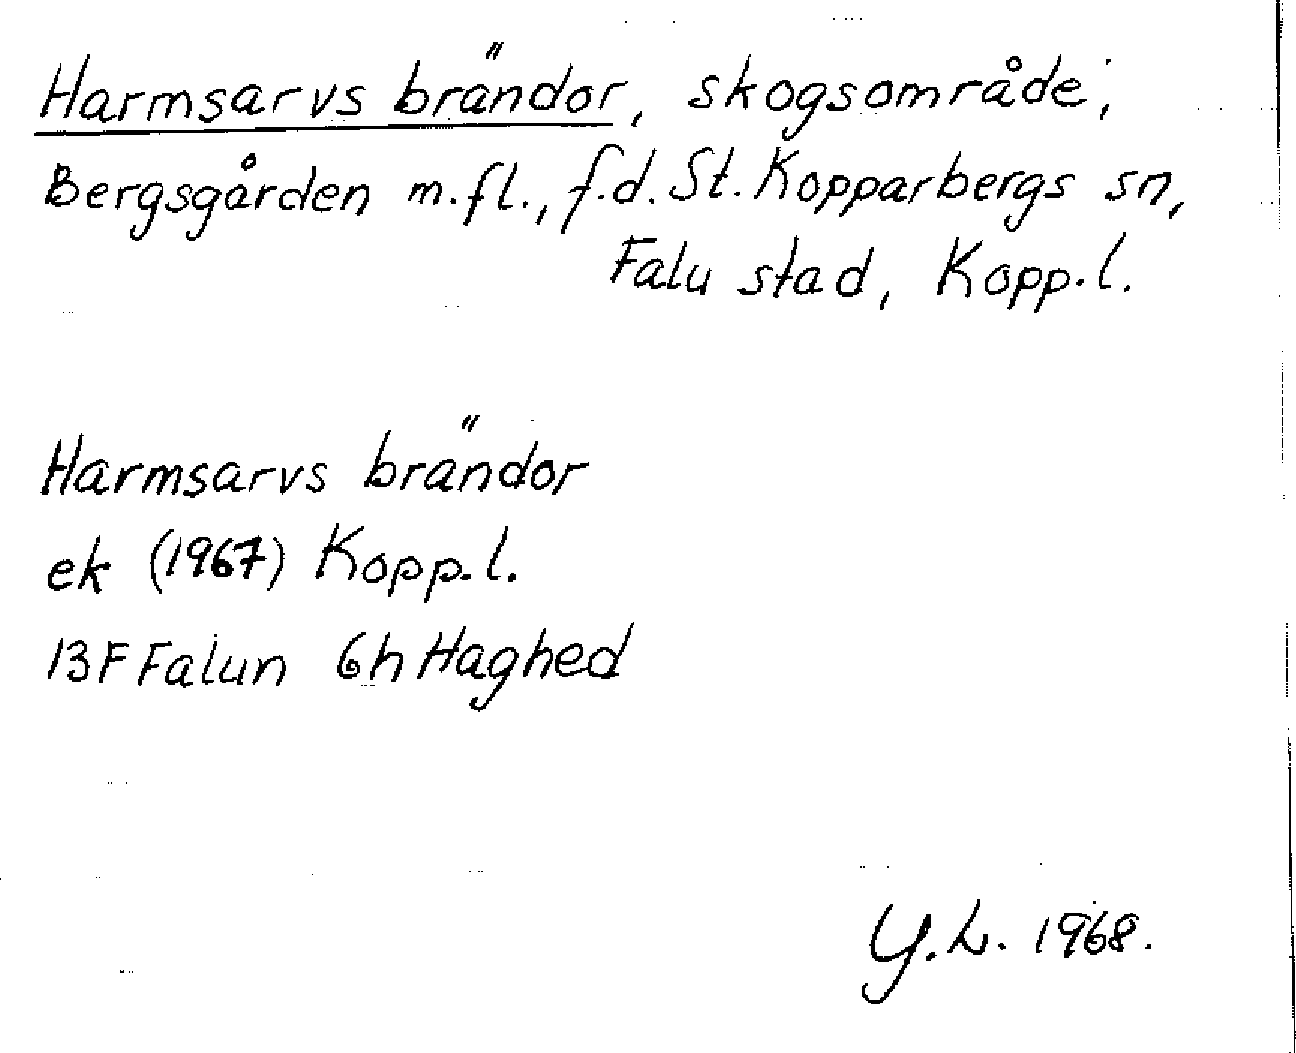 Harmsarvs brändor, skogsområde;
Bergsgården m.fl., f.d. St. Kopparbergs sn,
Falu stad, Kopp.l.
Harmsarvs brändor
ek (1967) Kopp.l.
13F Falun 6h Haghed
Y.L. 1968.